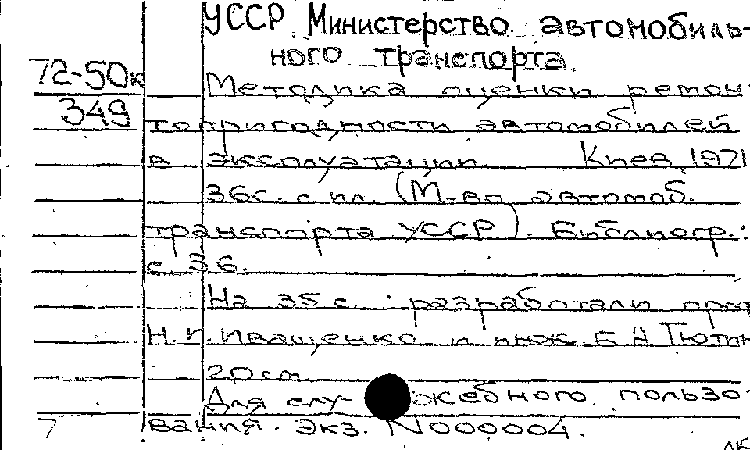 УССР Министерство автомобиль-
ного транспорта.
72-50к Методика оценки ремон
349 топригодности автомобилей
в эксплуатации. Киев, 1971
36с. с ил. (М-во автомоб.
транспорта УССР). Библиогр.:
с 36.
На 35 с.: разработали проф
Н.П. Иващенко и инж. Б Н Тютин
20 см
Для слу- жебного пользо
вания. экз. N000004.
7